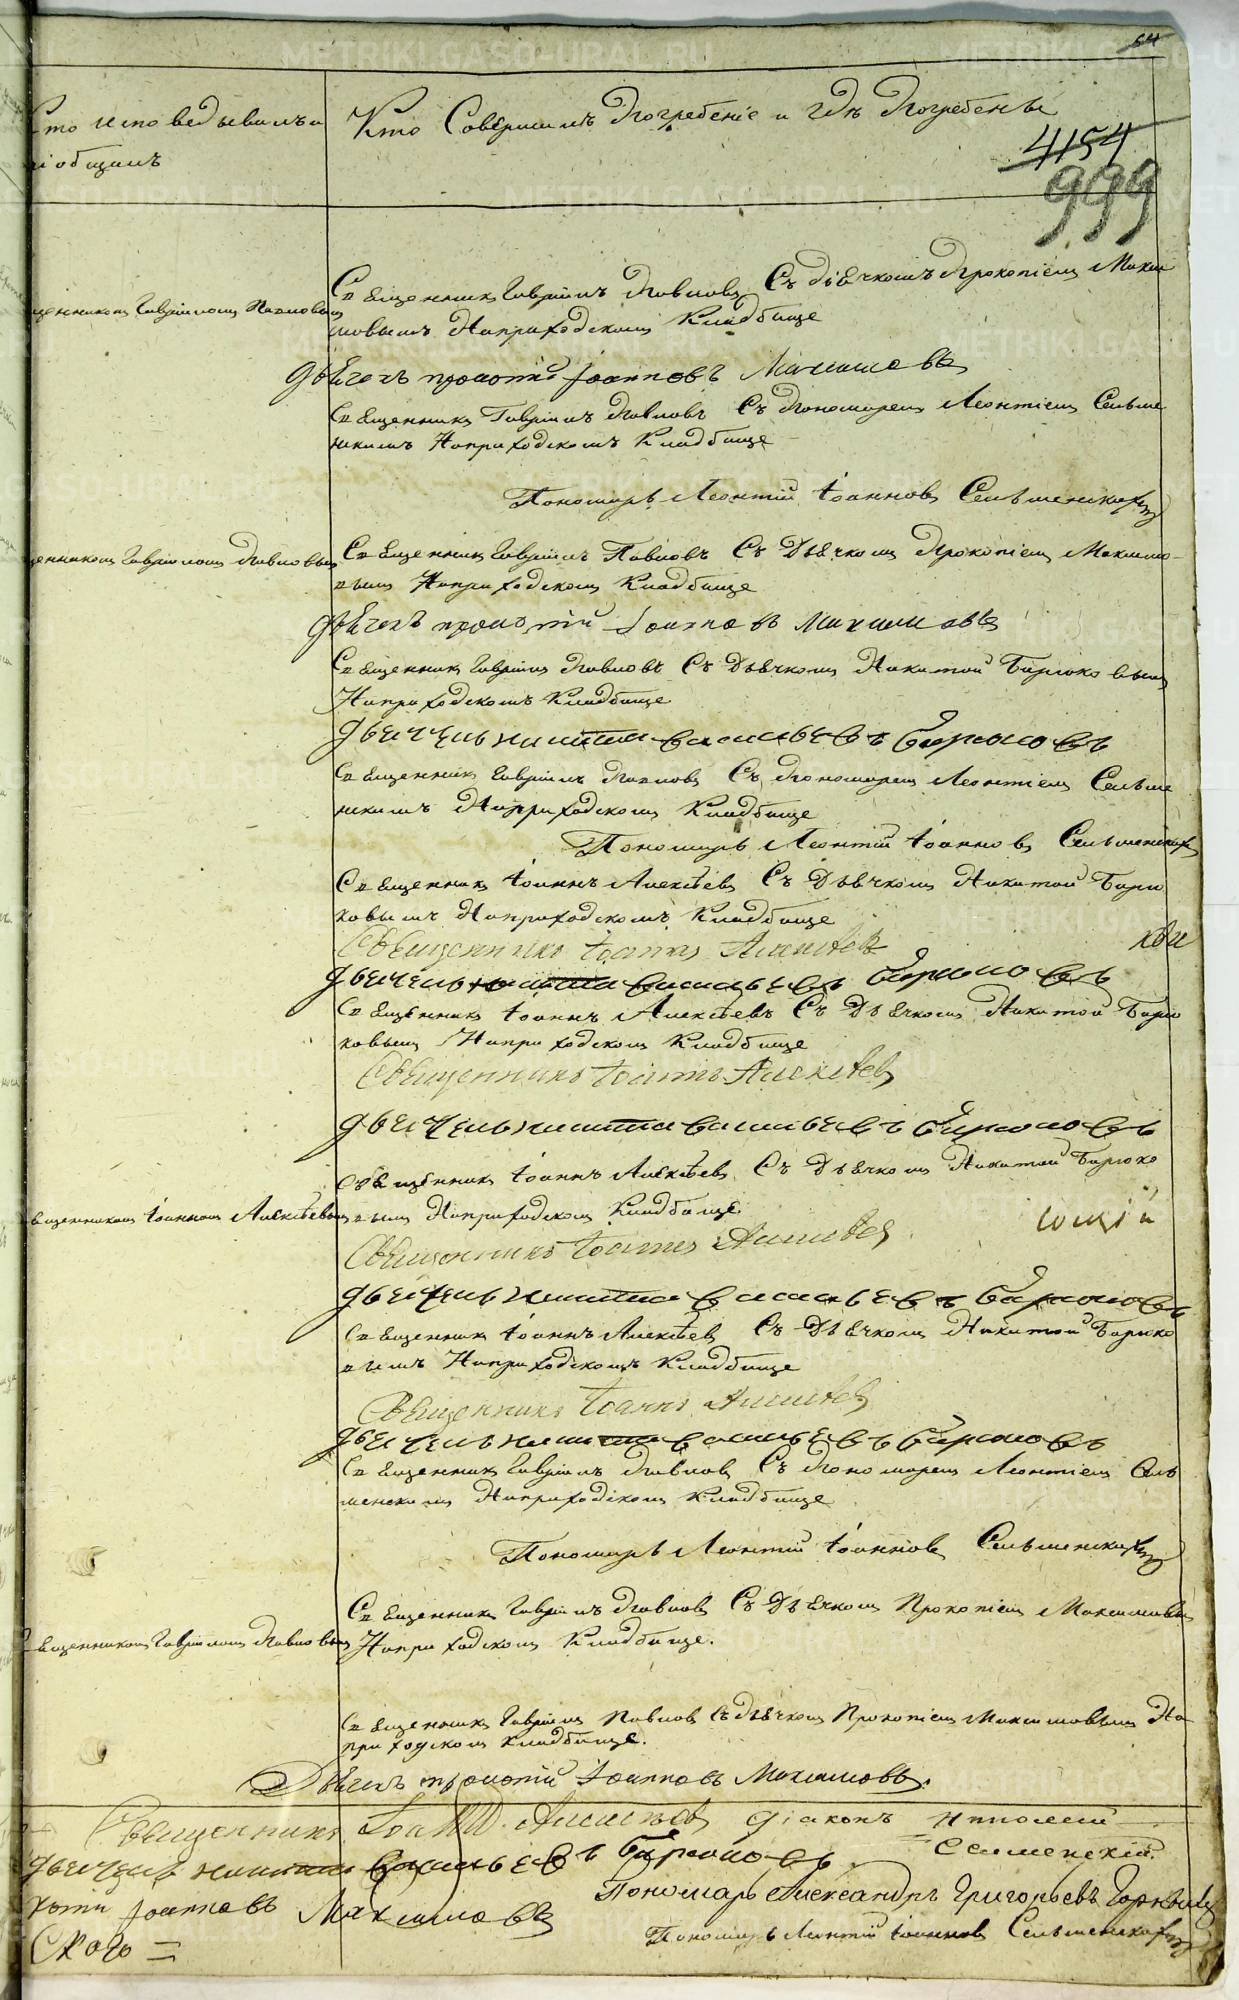 54
Кто исповедывалъ и
Кто Совершилъ Погребеніе и гдѣ Погребены
пріобщилъ
4154
999
Священникъ Гавріилъ Павловъ Съ Дьячкомъ Прокопіемъ Макси
щенникомъ Гавріиломъ Павловымъ
мовымъ На приходскомъ Кладбище
Дьячекъ Іоанновъ Максимовъ
Священникъ Гавріилъ Павловъ Съ Пономаремъ Леонтіемъ Сельме
нскимъ На приходскомъ Кладбище
Пономарь Леонтій Іоанновъ Сельменскихъ
щенникомъ Гавріиломъ Павловымъ
Священникъ Гавріилъ Павловъ Съ Дьячкомъ Прокопіемъ Максимо-
вымъ На приходскомъ Кладбище
Дьячекъ Іоанновъ Максимовъ
Священникъ Гавріилъ Павловъ Съ Дьячкомъ Никитой Бирюковымъ
На приходскомъ Кладбище
Дьячекъ Никита Васильевъ Бирюковъ
Священникъ Гавріилъ Павловъ Съ Пономаремъ Леонтіемъ Сельме
нскимъ На приходскомъ Кладбище
Пономарь Леонтій Іоанновъ Сельменскихъ
Священникъ Іоаннъ Алексѣевъ Съ Дьячкомъ Никитой Бирю
ковымъ На приходскомъ Кладбище
Священникъ Іоаннъ Алексѣевъ
Дьячекъ Никита Васильевъ Бирюковъ
Священникъ Іоаннъ Алексѣевъ Съ Дьячкомъ Никитой Бирю
ковымъ На приходскомъ Кладбище
Священникъ Іоаннъ Алексѣевъ
Дьячекъ Никита Васильевъ Бирюковъ
Священникъ Іоаннъ Алексѣевъ Съ Дьячкомъ Никитой Бирюко
вященникомъ Іоанномъ Алексѣевымъ
вымъ На приходскомъ Кладбище
Священникъ Іоаннъ Алексѣевъ
Дьячекъ Никита Васильевъ Бирюковъ
Священникъ Іоаннъ Алексѣевъ Съ Дьячкомъ Никитой Бирюко
вымъ На приходскомъ Кладбище
Священникъ Іоаннъ Алексѣевъ
Дьячекъ Никита Васильевъ Бирюковъ
Священникъ Гавріилъ Павловъ Съ Пономаремъ Леонтіемъ Сель
менскимъ На приходскомъ Кладбище
Пономарь Леонтій Іоанновъ Сельменскихъ
Священникъ Гавріилъ Павловъ Съ Дьячкомъ Прокопіемъ Максимовымъ
Священникомъ Гавріиломъ Павловымъ
На приходскомъ Кладбище.
Священникъ Гавріилъ Павловъ Съ Дьячкомъ Прокопіемъ Максимовымъ На
приходскомъ кладбище.
Дьячекъ Іоанновъ Максимовъ.
Священникъ Іоаннъ Алексѣевъ Діаконъ
Дьячекъ Никита Васильевъ Бирюковъ
Іоанновъ Максимовъ
Пономарь Александръ Григорьевъ
Пономарь Леонтій Іоанновъ Сельменскихъ
METRIKI.GASO-URAL.RU